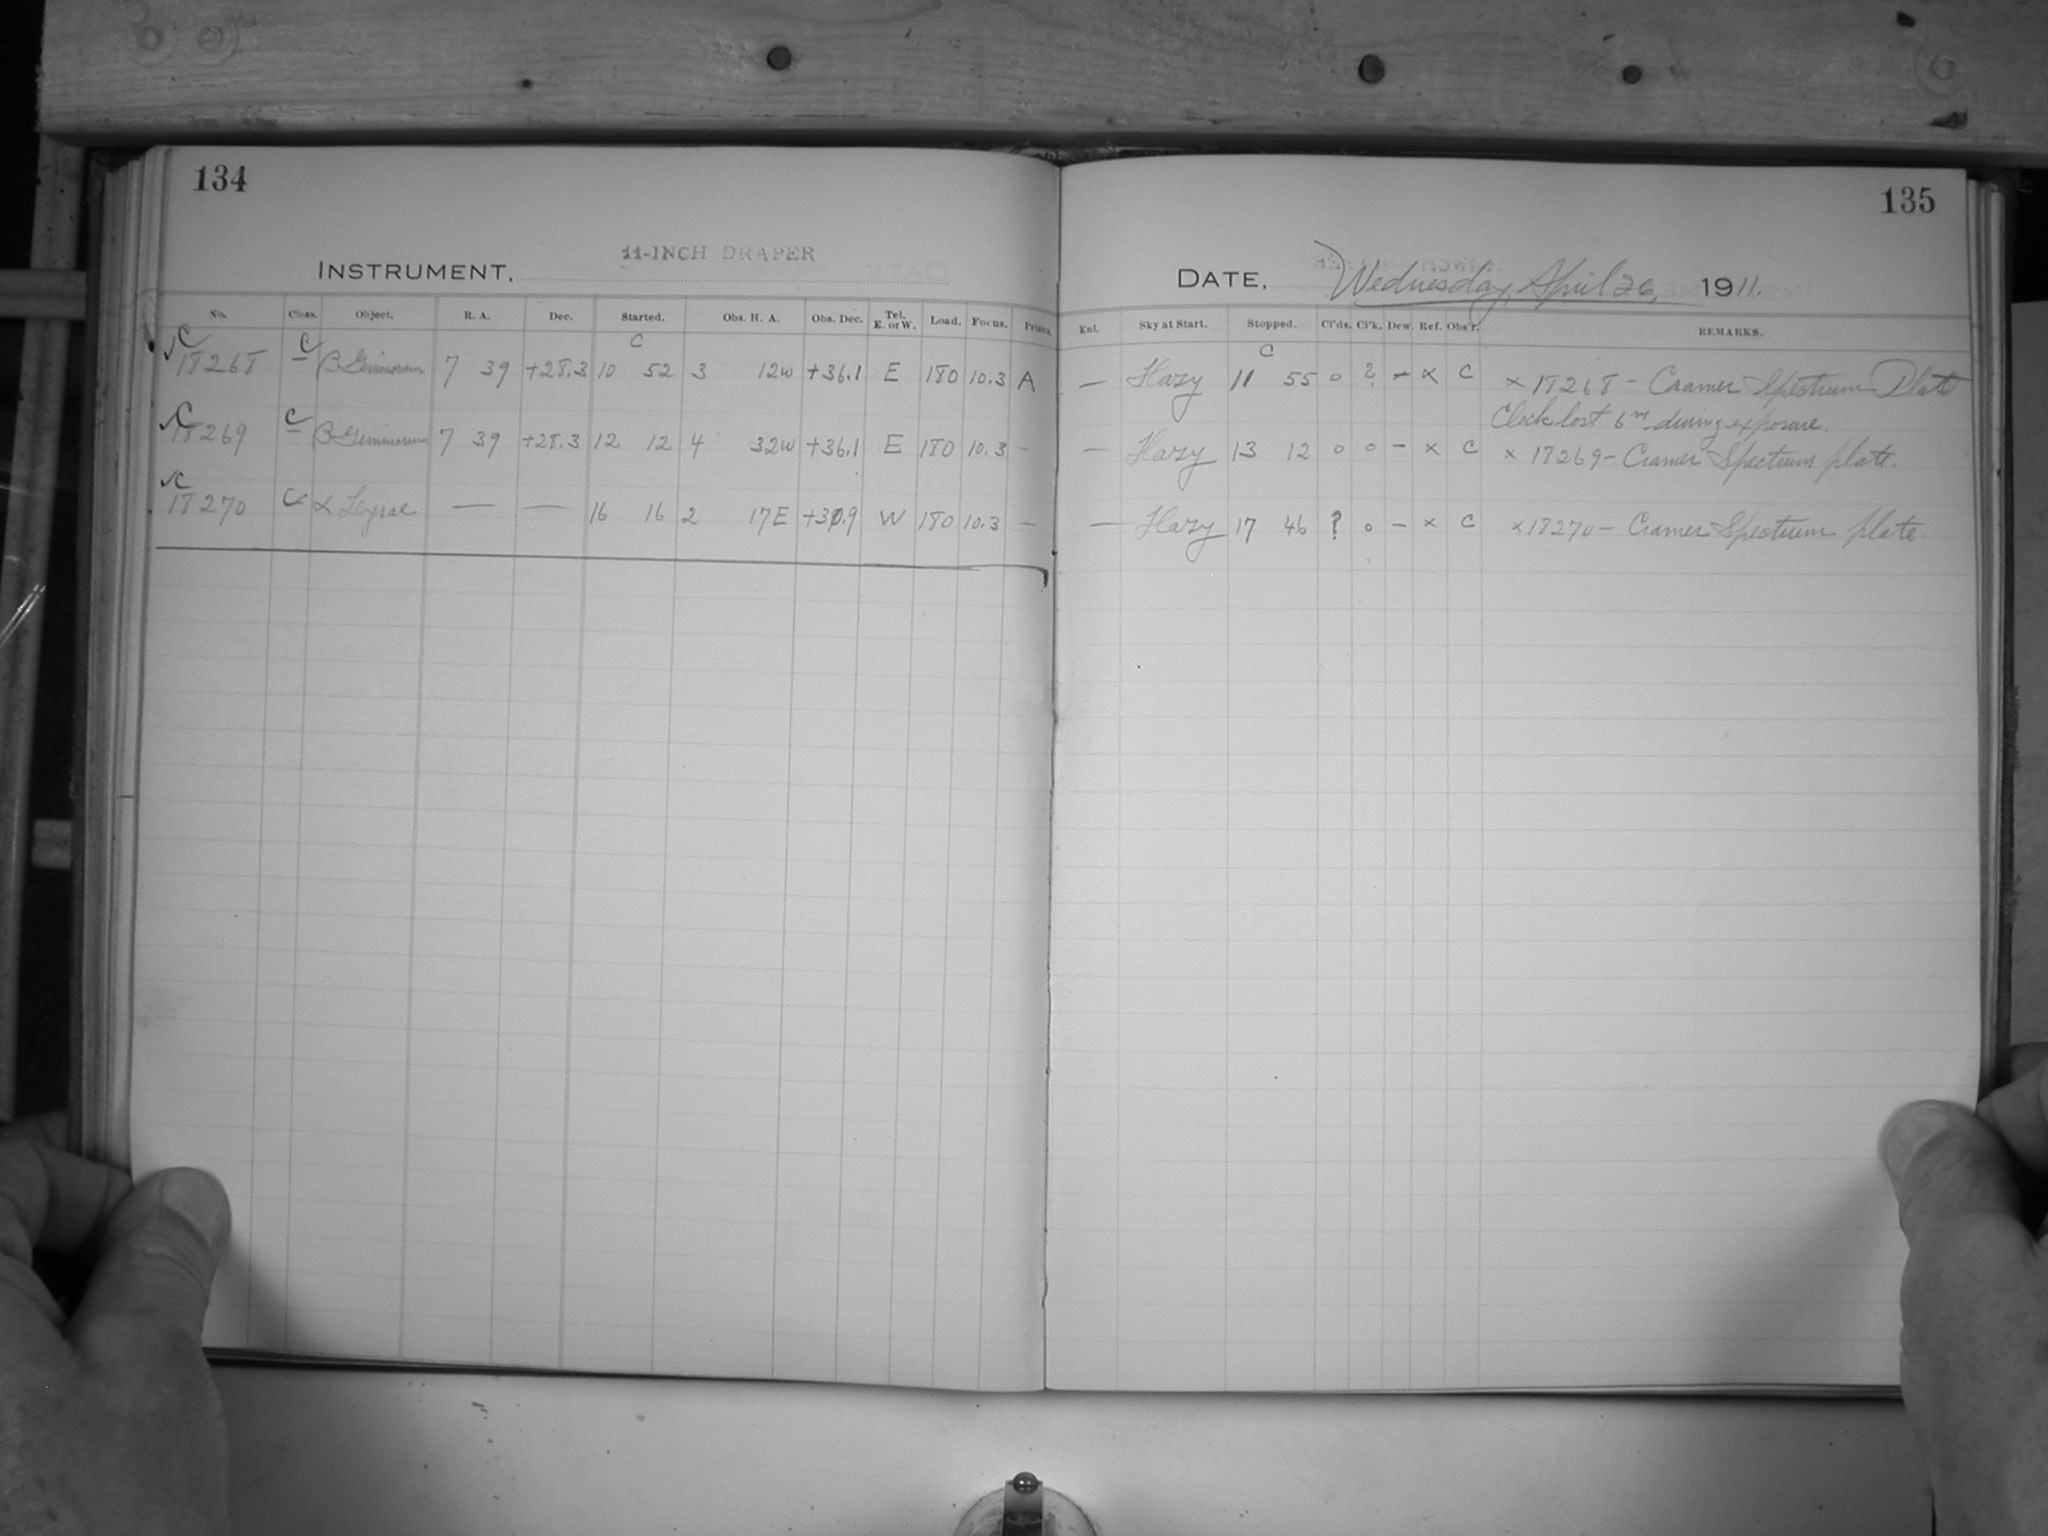 134
INSTRUMENT. 11-INCH DRAPER
No. Class. Object. R. A. Dec. Started. Obs. H. A. Obs. Dec. Tel. E. or W. Load. Focus. Prisms.
C C C
18268 – β Geminorum 7 39 +28.3 10 52 3 12w +36.1 E 180 10.3 A
C C
18269 – β Geminorum 7 39 +28.3 12 12 4 32w +36.1 E 180 10.3 –
C
18270 C α Lyrae — — 16 16 2 17E W 180 10.3 –
135
DATE. Wednesday, April 26, 1911.
Enl. Sky at Start. Stopped. Cl'ds. Cl'k. Dew. Ref. Obs'r. REMARKS.
C
— Hazy 11 55 o ? – x C x 18268 – Cramer Spectrum Plate
Clock lost 6m during exposure.
— Hazy 13 12 o o – x C x 18269 – Cramer Spectrum plate.
— Hazy 17 46 ? o – x C x 18270 – Cramer Spectrum plate